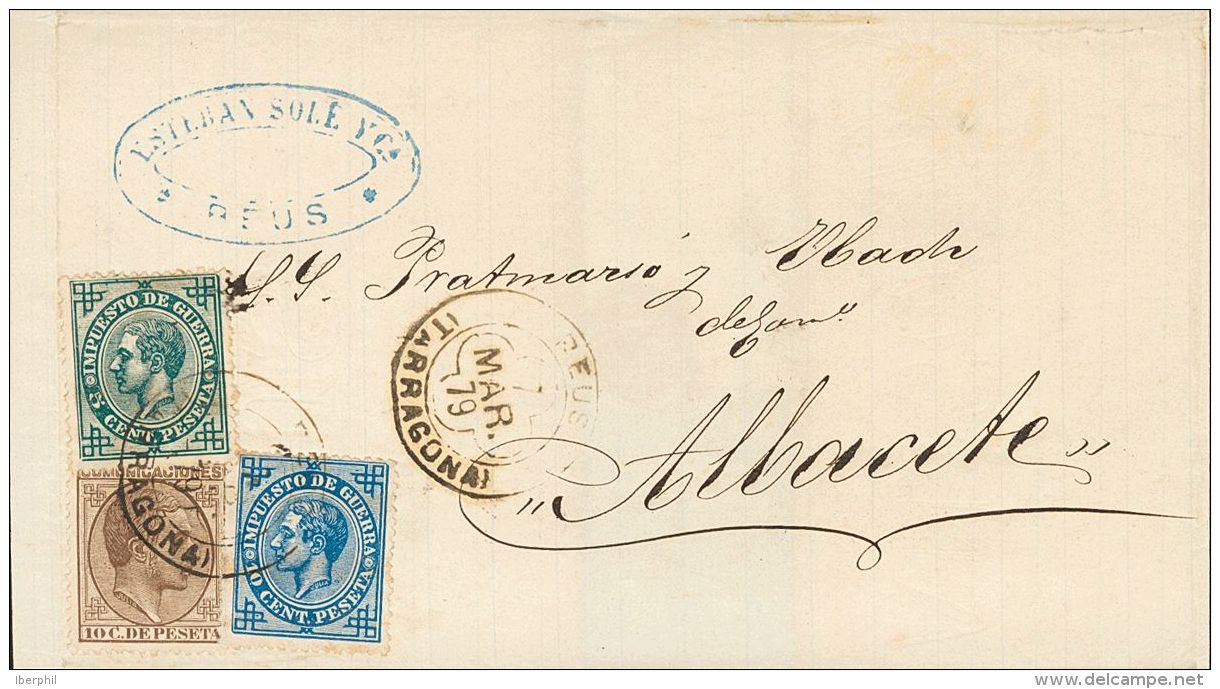 ESTEBAN SOLÉ Y Cª
REUS
S. S. Pratmarsó y Ubach
Albacete
REUS
7
MAR.
79
(TARRAGONA)
IMPUESTO DE GUERRA
5 CENT. PESETA
COMUNICACIONES
JULIA
10 C. DE PESETA
IMPUESTO DE GUERRA
10 CENT. PESETA
JULIA
RAGONA)
Iberphil
www.delcampe.net